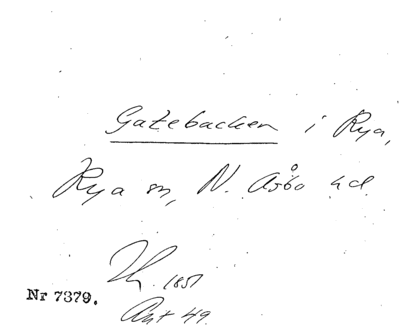 Gatebacken i Rya,
Rya sn, N. Åsbo hd.
1851
Nr 7379.
Ant 49.